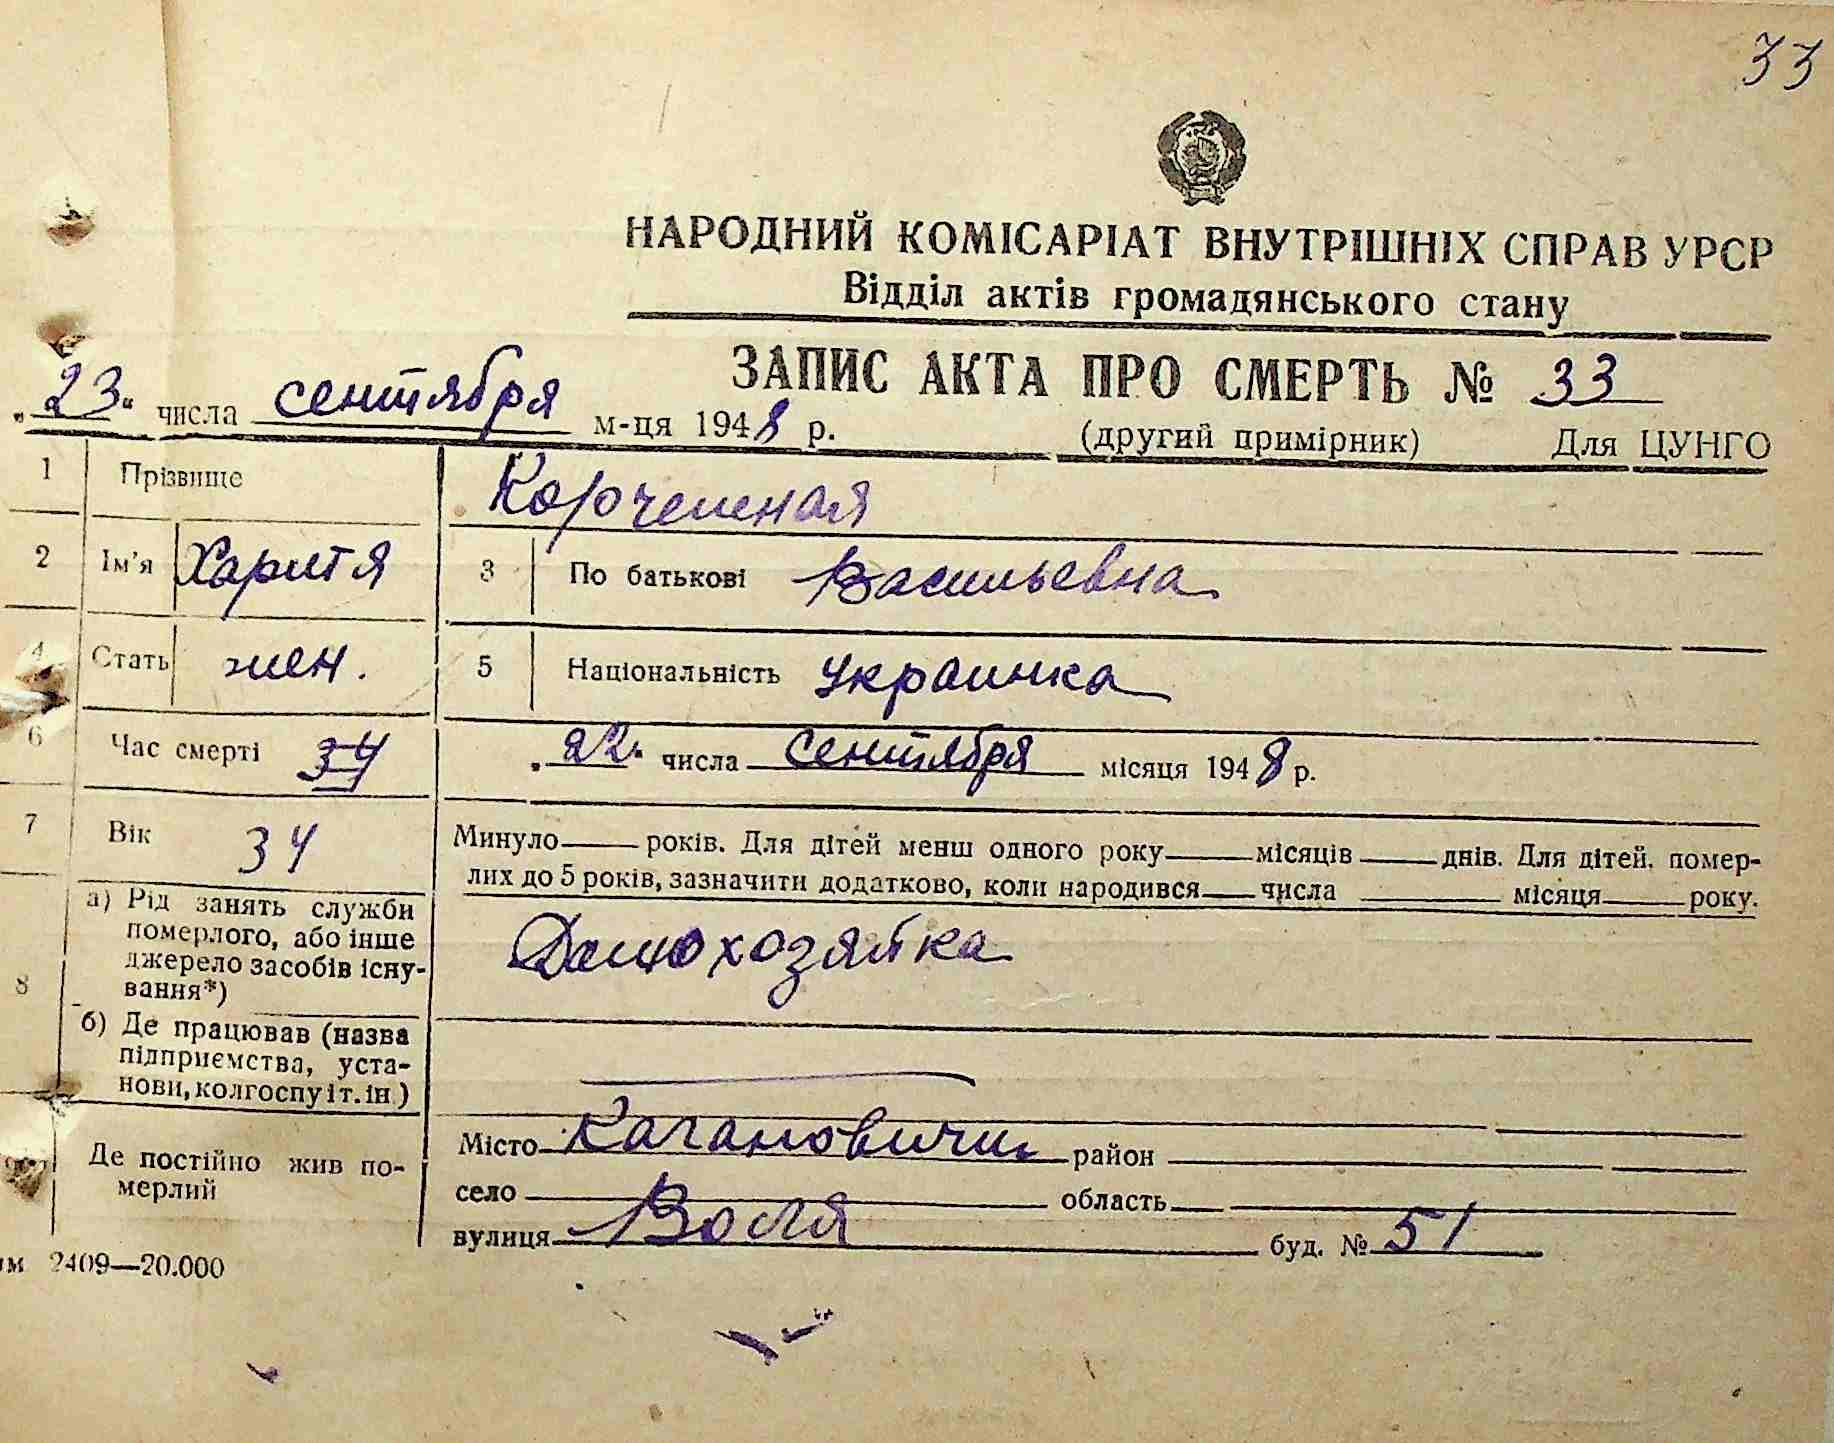 33
НАРОДНИЙ КОМІСАРІАТ ВНУТРІШНІХ СПРАВ УРСР
Відділ актів громадянського стану
ЗАПИС АКТА ПРО СМЕРТЬ № 33
„23“ числа сентября м-ця 1948 р. (другий примірник) Для ЦУНГО
1 Прізвище Корчемная
2 Ім'я Харитя 3 По батькові Васильевна
4 Стать жен. 5 Національність украинка
6 Час смерті 34 „22“ числа сентября місяця 1948 р.
7 Вік 34 Минуло — років. Для дітей менш одного року — місяців — днів. Для дітей, помер-
лих до 5 років, зазначити додатково, коли народився — числа — місяця — року.
8 а) Рід занять служби
померлого, або інше
джерело засобів існу-
вання*) Домохозяйка
б) Де працював (назва
підприємства, уста-
нови, колгоспу і т. ін.) —
Де постійно жив по-
мерлий
Місто Кагановичи район
село область
вулиця Воля буд. № 51
2409—20.000